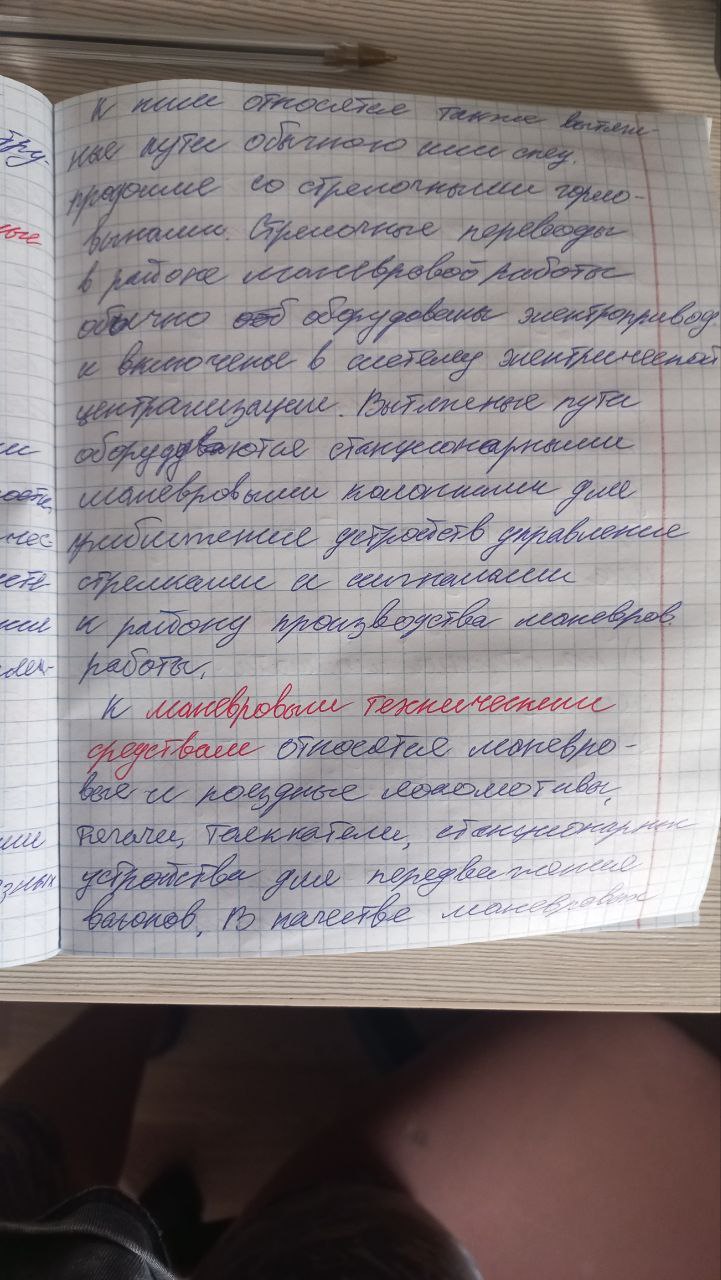 К ним относятся также вытяж-
ные пути обычного или спец.
профиля со стрелочными горло-
винами. Стрелочные переводы
в районе маневровой работы
обычно оборудованы электропривод
и включены в систему электрической
централизации. Вытяжные пути
оборудуются станционарными
маневровыми колонками для
приближения устройств управления
стрелками и сигналами
к району производства маневров.
работы.
К маневровым техническим
средствам относятся маневро-
вые и поездные локомотивы,
тягачи, толккатели, станционарные
устройства для передвижения
вагонов. В качестве маневровых